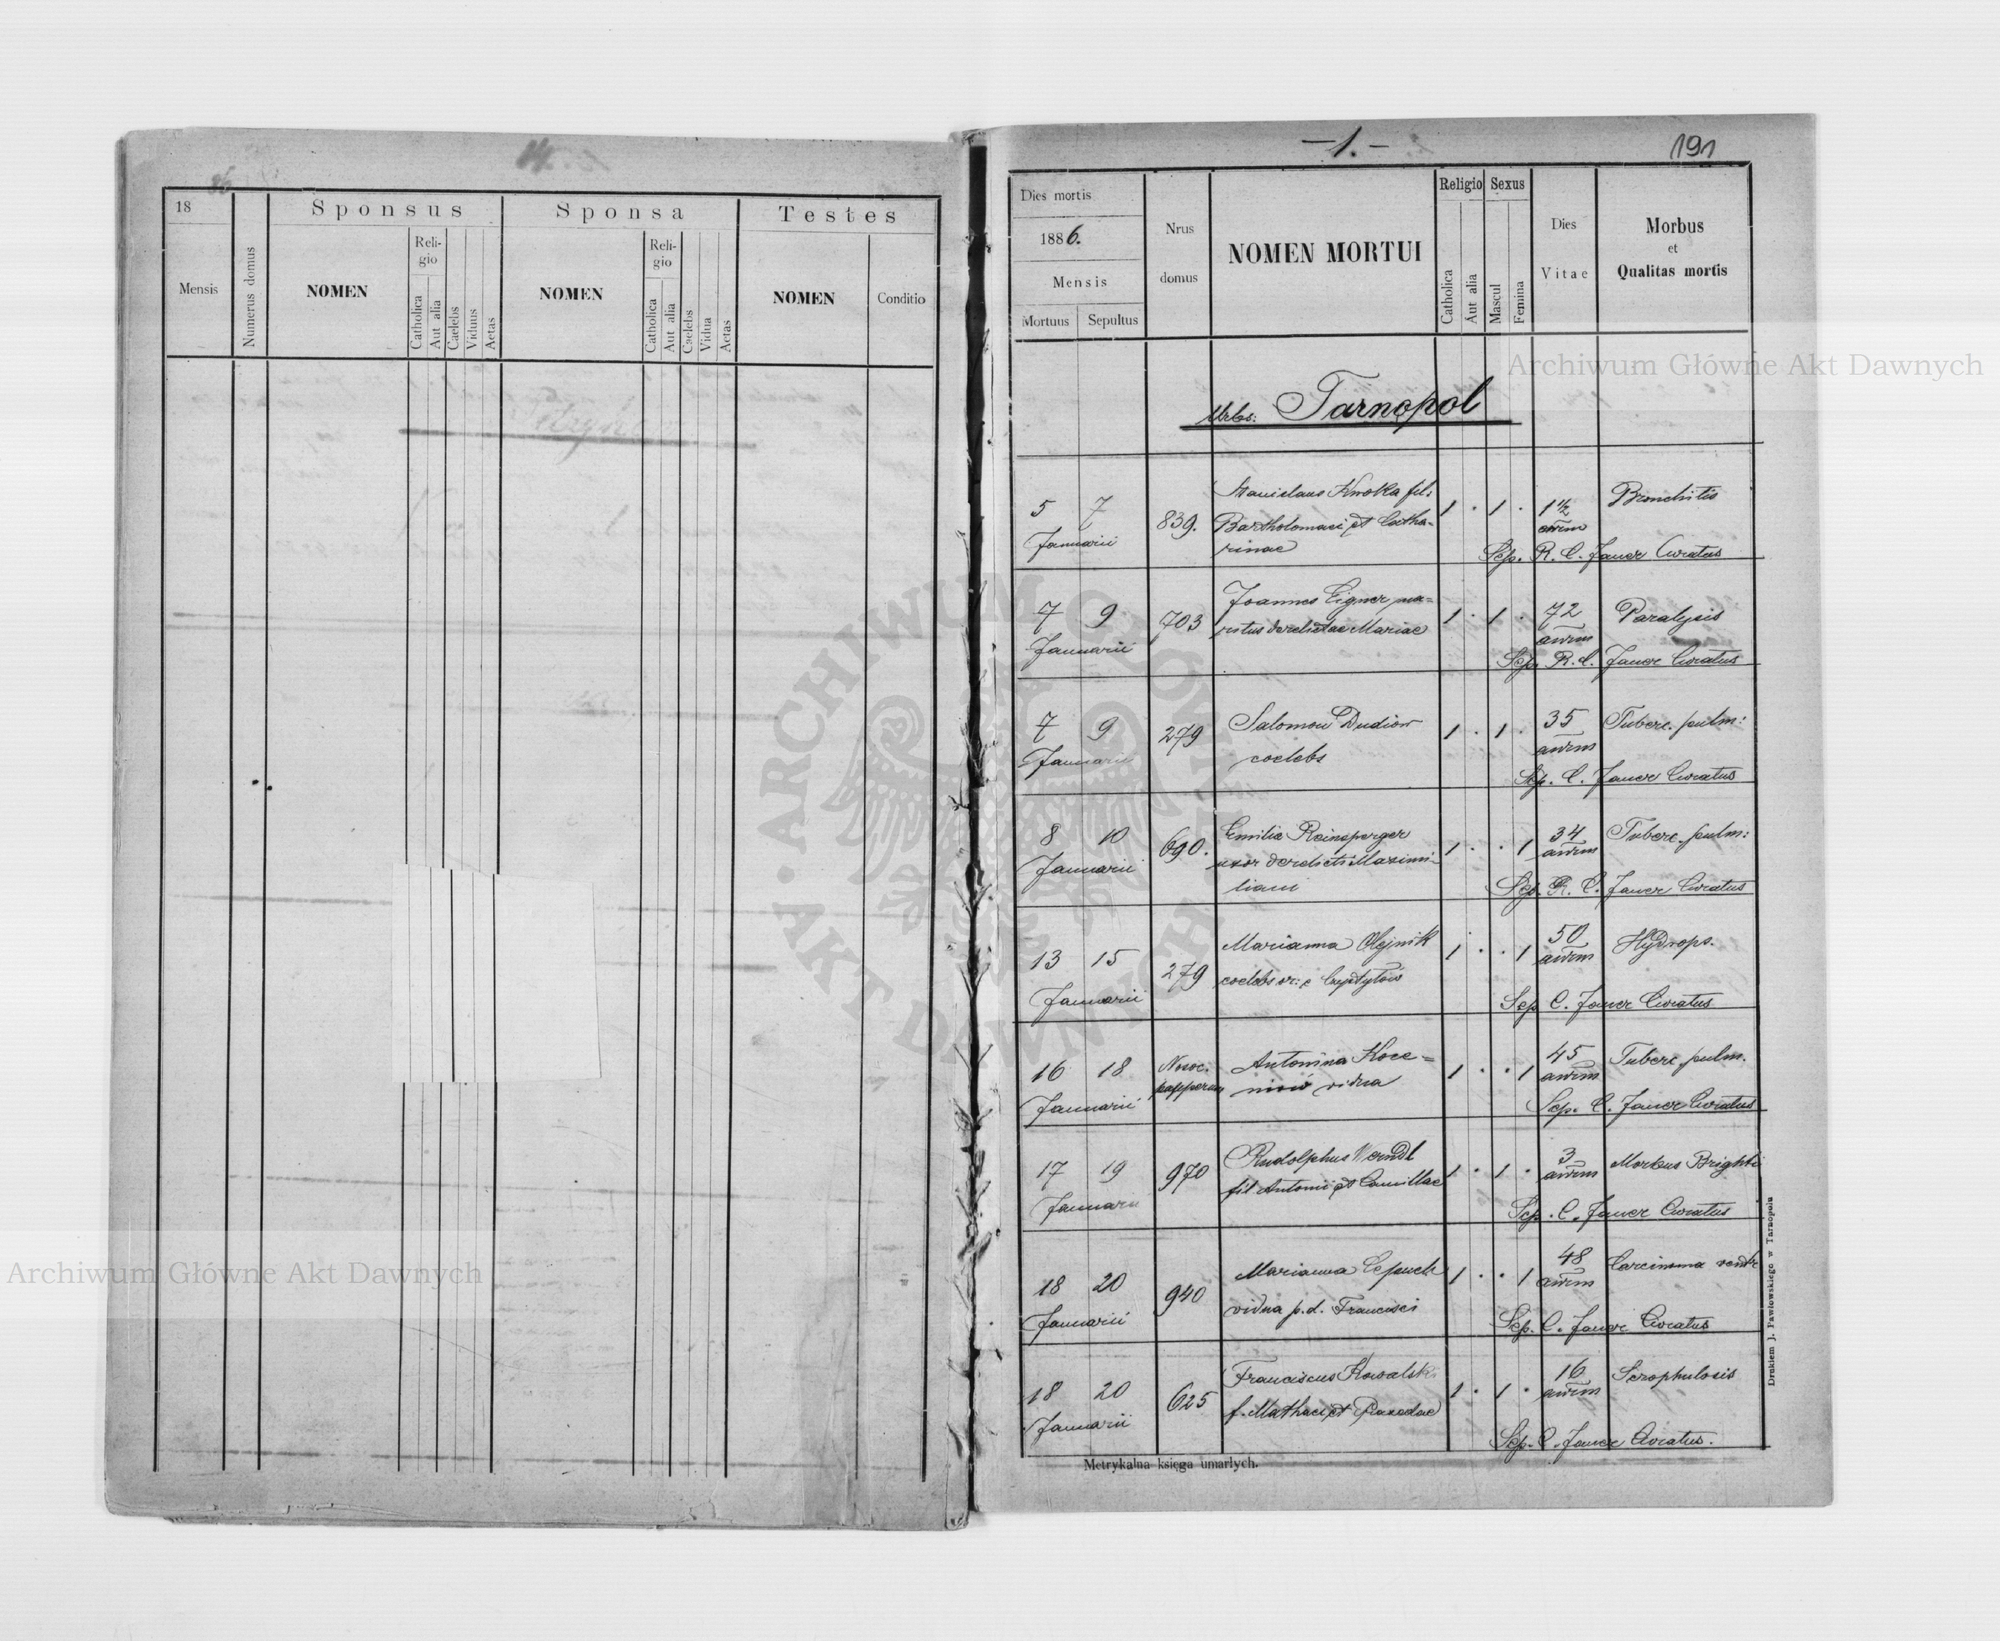 18
Mensis
Numerus domus
Sponsus
NOMEN
Reli-
gio
Catholica
Aut alia
Caelebs
Viduus
Aetas
Sponsa
NOMEN
Reli-
gio
Catholica
Aut alia
Caelebs
Vidua
Aetas
Testes
NOMEN
Conditio
-1.-
191
Dies mortis
1886.
Mensis
Mortuus Sepultus
Nrus
domus
NOMEN MORTUI
Religio
Catholica
Aut alia
Sexus
Mascul
Femina
Dies
Vitae
Morbus
et
Qualitas mortis
Urbs: Tarnopol
5 7
Januarii
839.
Stanislaus Knoka fil:
Bartholomaei et Catha-
rinae
1 . 1 .
1½
annm
Bronchitis
Sep. R. C. Jauer Curatus
7 9
Januarii
703
Joannes Eigner ma-
ritus derelictae Mariae
1 . 1 .
72
annm
Paralysis
Sep. R. C. Jauer Curatus
7 9
Januarii
279
Salomon Dudion
coelebs
1 . 1 .
35
annm
Tuberc. pulm:
Sep. C. Jauer Curatus
8 10
Januarii
690.
Emilia Reinsperger
uxor derelicti Maximi-
liani
1 . . 1
34
annm
Tuberc. pulm:
Sep. R. C. Jauer Curatus
13 15
Januarii
279
Marianna Olejnik
coelebs
1 . . 1
50
annm
Hydrops.
Sep C. Jauer Curatus
16 18
Januarii
Nosoc.
pauperum
Antonina
vidua
1 . . 1
45
annm
Tuberc. pulm.
Sep. C. Jauer Curatus
17 19
Januarii
970
Rudolphus Werndl
fil Antonii et Camillae
1 . 1 .
3
annm
Morbus Brighti
Sep. C. Jauer Curatus
18 20
Januarii
940
Marianna Cepuch
vidua p.d. Francisci
1 . . 1
48
annm
Carcinoma ventr
Sep. C. Jauer Curatus
18 20
Januarii
625
Franciscus Kowalski
f. Mathaei et Praxedae
1 . 1 .
16
annm
Scrophulosis
Sep. C. Jauer Curatus.
Metrykalna księga umarłych.
Drukiem J. Pawłowskiego w Tarnopolu
Archiwum Główne Akt Dawnych
Archiwum Główne Akt Dawnych
ARCHIWUM GŁÓWNE AKT DAWNYCH